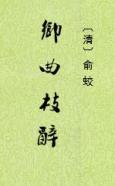 〔清〕俞蛟
鄉曲枝辭